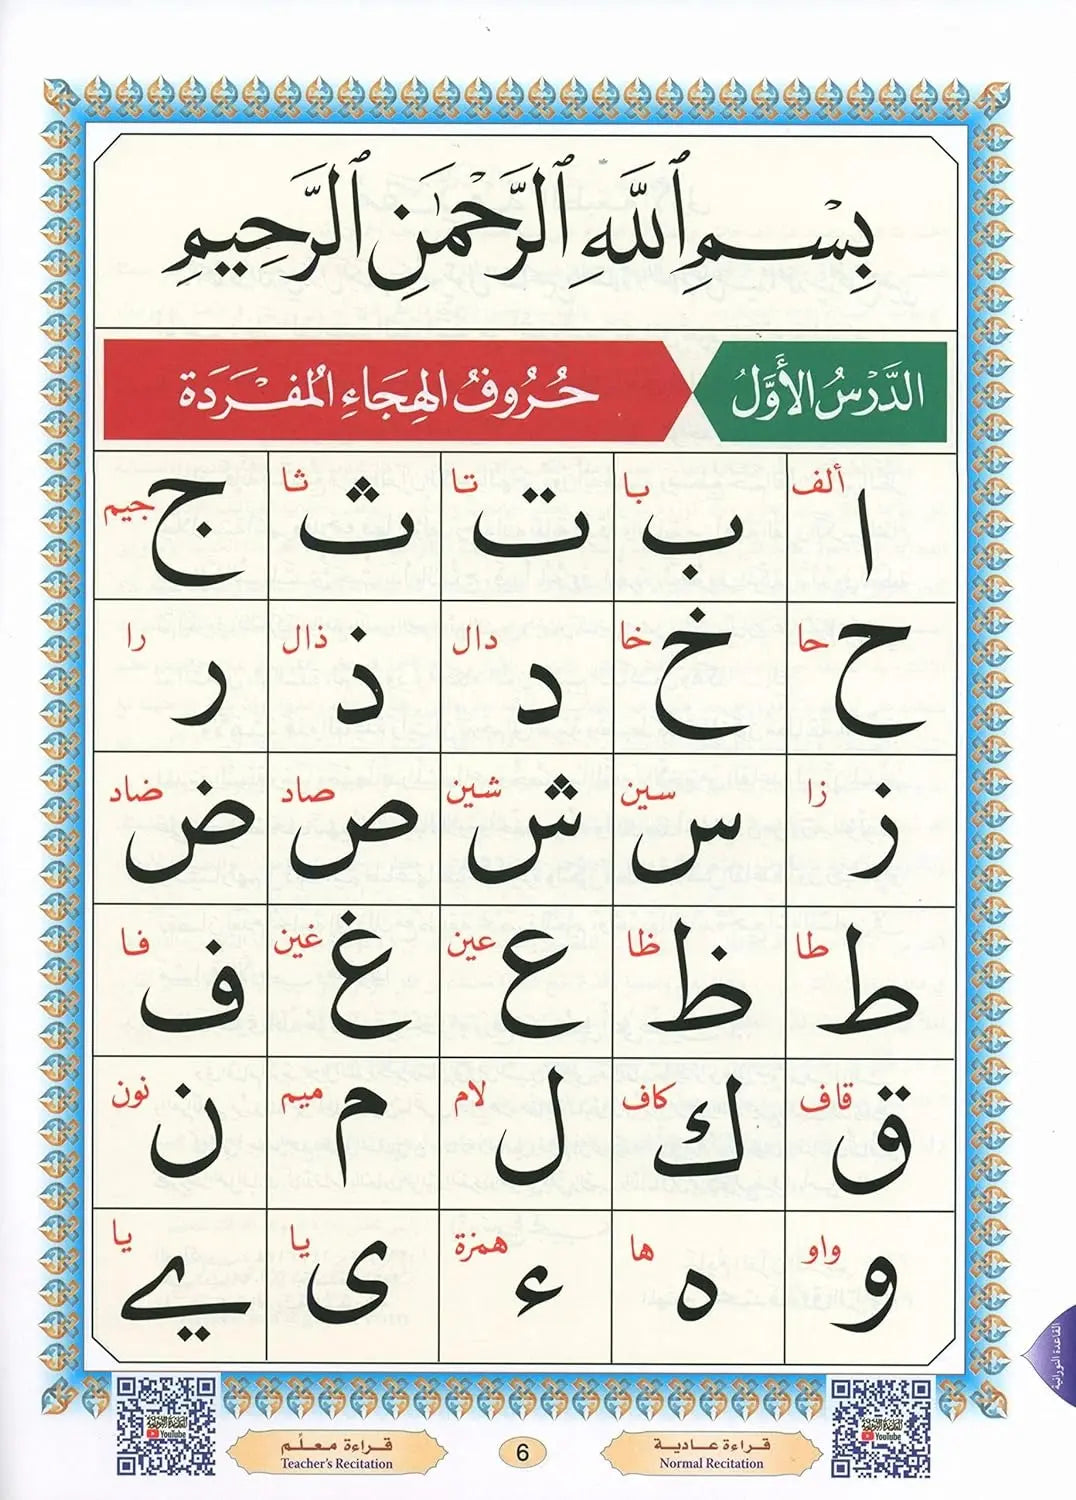 بِسْمِ ٱللَّهِ ٱلرَّحْمَـٰنِ ٱلرَّحِيمِ
الدَّرْسُ الأَوَّلُ حُرُوفُ الهِجَاءِ المُفْرَدَة
ا ألف ب با ت تا ث ثا ج جيم
ح حا خ خا د دال ذ ذال ر را
ز زا س سين ش شين ص صاد ض ضاد
ط طا ظ ظا ع عين غ غين ف فا
ق قاف ك كاف ل لام م ميم ن نون
و واو ه ها ء همزة ى يا ے يا
القاعدة النورانية
قراءة عادية
Normal Recitation
6
قراءة معلّم
Teacher's Recitation
القاعدة النورانية
YouTube
القاعدة النورانية
YouTube